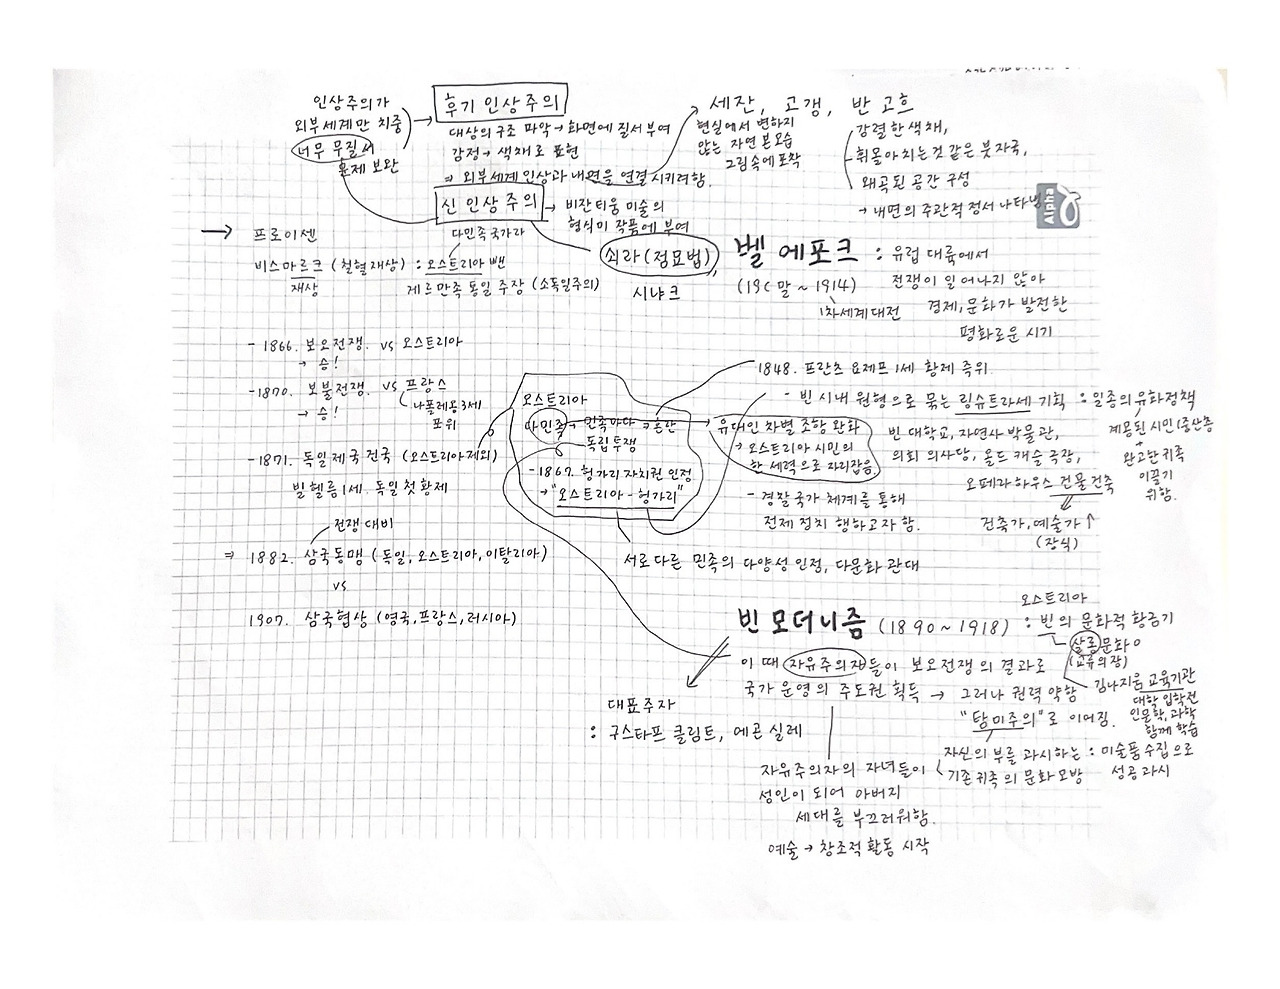 인상주의가
외부세계만 치중
너무 무질서
문제 보완
후기 인상주의
대상의 구조 파악 → 화면에 질서 부여
감정 → 색채로 표현
⇒ 외부세계 인상과 내면을 연결시키려함.
신 인상주의 → 비잔티움 미술의
형식미 작품에 부여
쇠라 (점묘법),
시냐크
세잔, 고갱, 반 고흐
현실에서 변하지
않는 자연 본모습
그림속에 포착
강렬한 색채,
휘몰아치는것 같은 붓자국,
왜곡된 공간 구성
→ 내면의 주관적 정서 나타냄
Alpha
벨 에포크 : 유럽 대륙에서
(19C 말 ~ 1914) 전쟁이 일어나지 않아
1차세계대전 경제, 문화가 발전한
평화로운 시기
→ 프로이센
다민족 국가라
비스마르크 (철혈재상) : 오스트리아 뺀
재상 게르만족 통일 주장 (소독일주의)
- 1866. 보오전쟁. vs 오스트리아
→ 승!
- 1870. 보불전쟁. vs 프랑스
→ 승! 나폴레옹 3세
포위
- 1871. 독일 제국 건국 (오스트리아 제외)
빌헬름 1세. 독일 첫 황제
전쟁 대비
⇒ 1882. 삼국동맹 (독일, 오스트리아, 이탈리아)
vs
1907. 삼국협상 (영국, 프랑스, 러시아)
오스트리아
다민족 → 민족마다 → 혼란
독립투쟁
- 1867. 헝가리 자치권 인정
→ "오스트리아 - 헝가리"
서로 다른 민족의 다양성 인정, 다문화 관대
1848. 프란츠 요제프 1세 황제 즉위.
- 빈 시내 원형으로 묶는 링슈트라세 기획 : 일종의 유화정책
빈 대학교, 자연사 박물관,
의회 의사당, 올드 캐슬 극장,
오페라 하우스 건물 건축
건축가, 예술가 ↑
(장식)
계몽된 시민 (중산층
완고한 귀족
이끌기
위함.
유대인 차별 조항 완화
→ 오스트리아 시민의
한 세력으로 자리잡음
- 경찰 국가 체계를 통해
전제 정치 행하고자 함.
오스트리아
빈 모더니즘 (1890 ~ 1918) : 빈의 문화적 황금기
살롱 문화
(교류의 장)
김나지움 교육기관
대학 입학전
인문학, 과학
함께 학습
이 때 자유주의자들이 보오전쟁의 결과로
국가 운영의 주도권 획득 → 그러나 권력 약함
"탐미주의"로 이어짐.
자신의 부를 과시하는 : 미술품 수집으로
기존 귀족의 문화 모방 성공 과시
대표주자
: 구스타프 클림트, 에곤 실레
자유주의자의 자녀들이
성인이 되어 아버지
세대를 부끄러워함.
예술 → 창조적 활동 시작